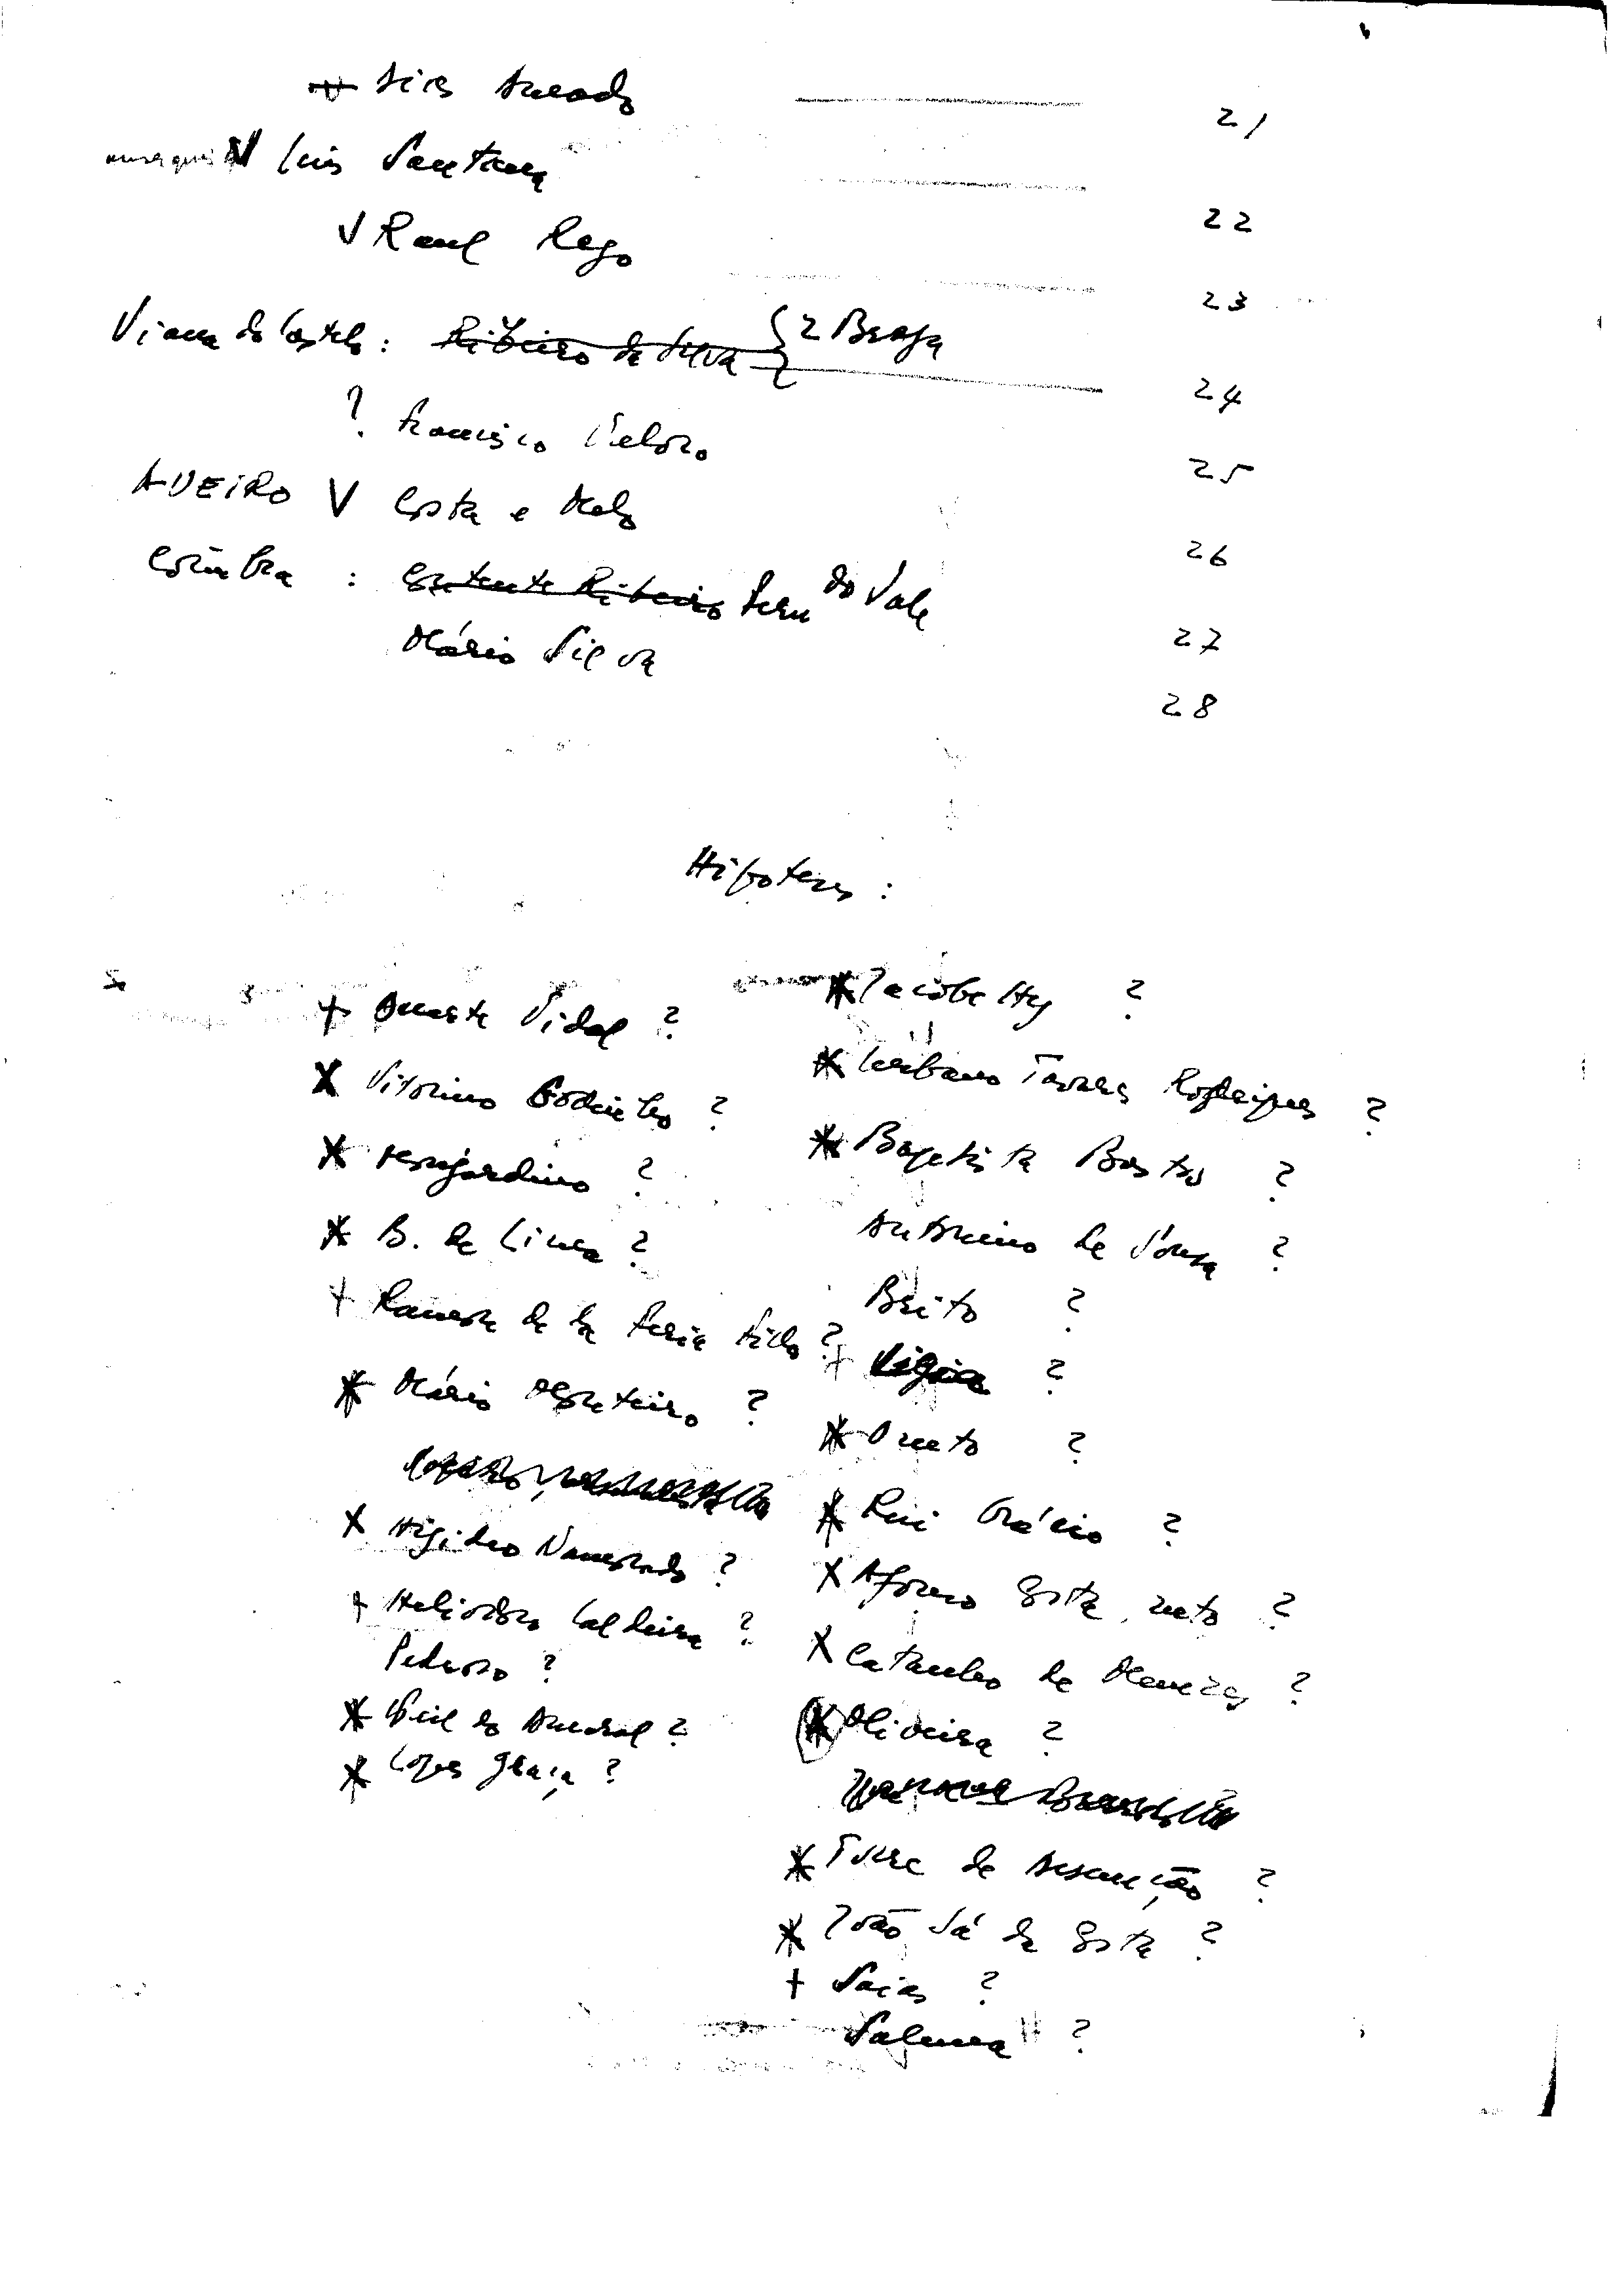 Dias Amado 21
Luis Santana 22
V Raul Rego 23
Viana do Castelo : Ribeiro da Silva 2 Braga 24
? Francisco Veloso 25
AVEIRO V Costa e Melo 26
Coimbra : Ribeiro Fern do Vale 27
Mário Silva 28
Hipoteses :
+ Duarte Vidal ?
X Vitorino Godinho ?
X Hernâni ?
X B. de Lima ?
+ Ramon de la Feria filho ?
X Mário Monteiro ?
X Higidio Namorado ?
+ Heliodoro Caldeira ?
Pedroso ?
X Gil do Amaral ?
X Lopes Graça ?
X Jacobetty ?
X Urbano Tavares Rodrigues ?
X Baptista Bastos ?
Antonino de Sousa ?
Brito ?
+ Vigia ?
X Oneto ?
X Rui Grácio ?
X Afonso Costa, neto ?
X Catanho de Menezes ?
X Oliveira ?
X Torre de Assunção ?
X João Sá da Costa ?
+ Saias ?
Salema ?